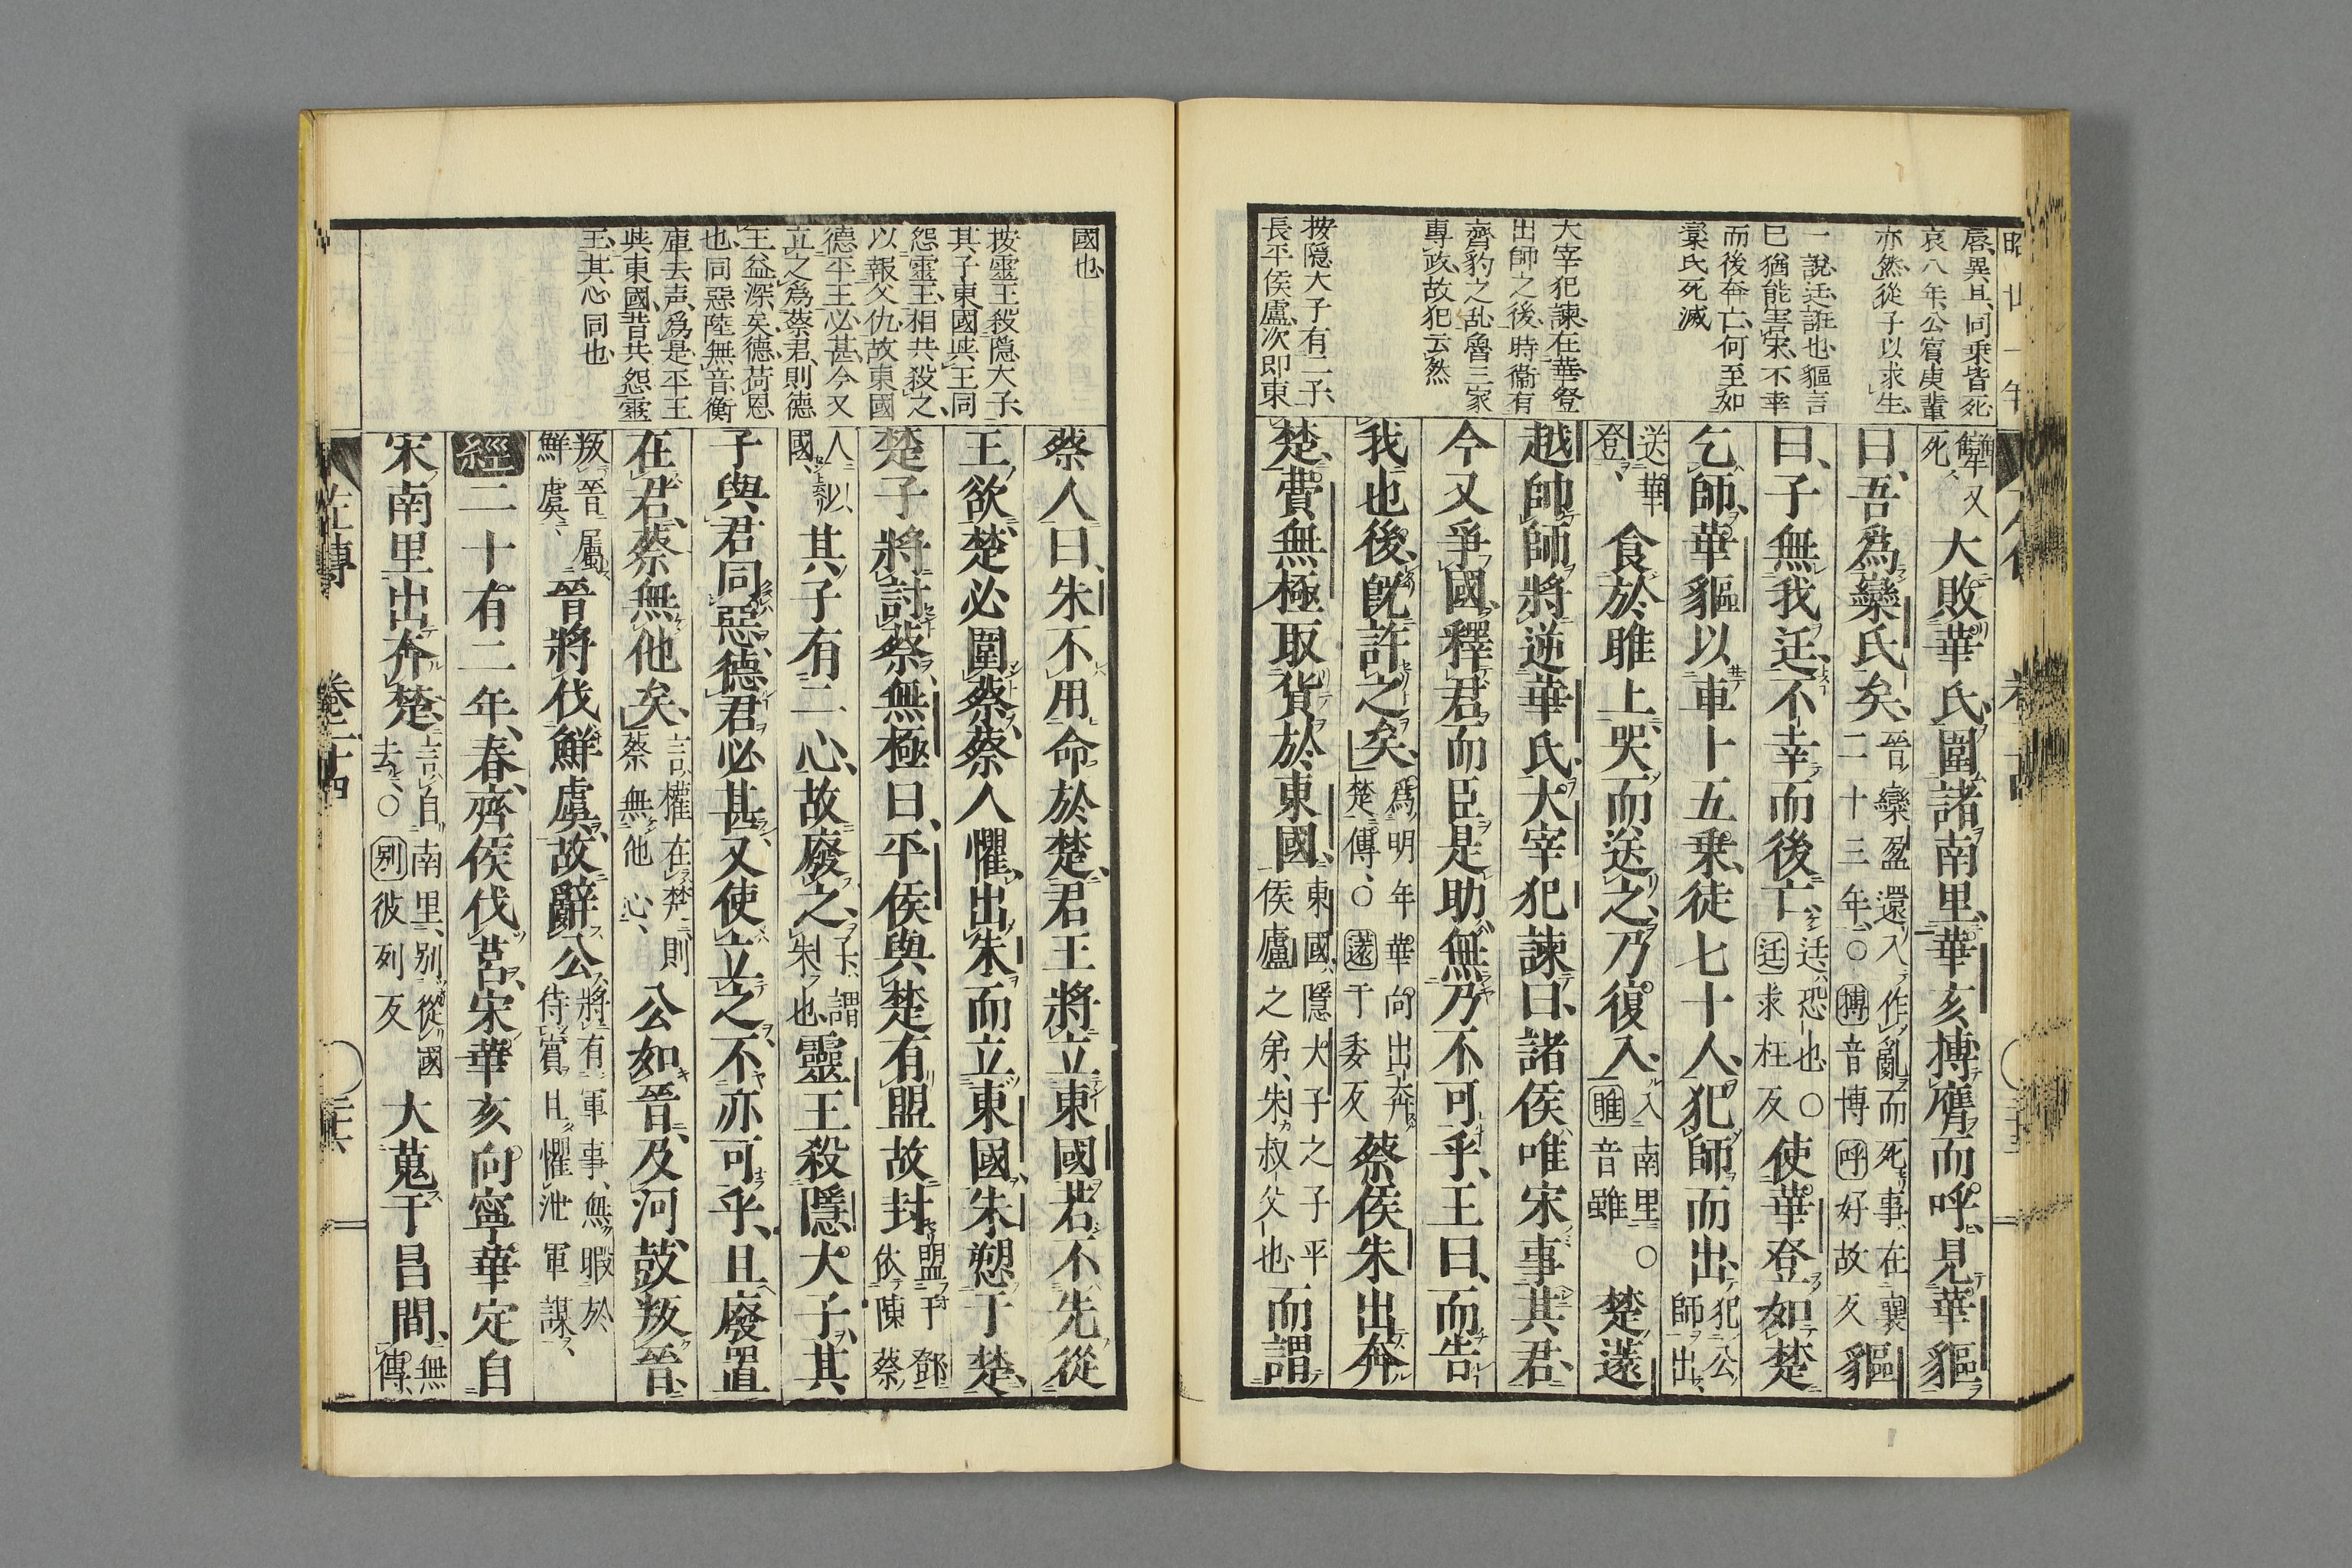 唇、異耳、同乗皆死
哀八年、公賓庚輩
亦然、從子以求生、
一說、迋、誑也、貙言
已猶能害宋、不幸
而後奔亡、何至如
欒氏死滅
大宰犯諫、在華登
出師之後、時衞有
齊豹之乱、魯三家
專政、故犯云然
按隱大子有二子、
長平侯盧、次即東
犫又
死
大敗華氏、圍諸南里、華亥搏膺而呼、見華貙
曰、吾爲欒氏矣、
晉欒盈還入作亂而死、事在襄
二十三年、○搏音博呼好故反
貙
曰、子無我迋、不幸而後亡、
迋、恐也、○
迋求枉反
使華登如楚
乞師、華貙以車十五乗、徒七十人、犯師而出、
犯公
師出
送華
登、
食於睢上、哭而送之、乃復入、
入南里、○
睢音雖
楚薳
越帥師將逆華氏、大宰犯諫曰、諸侯唯宋事其君、
今又爭國、釋君而臣是助、無乃不可乎、王曰、而告
我也後、旣許之矣、
爲明年華向出奔
楚傳、○薳于委反
蔡侯朱出奔
楚、費無極取貨於東國、
東國、隱大子之子平
侯廬之弟、朱叔父也
而謂
國也、
按靈王殺隱大子、
其子東國與王同
怨靈王、相共殺之、
以報父仇、故東國
德平王、必甚、今又
立之爲蔡君、則德
王益深矣、德、荷恩
也、同惡陸無音、衡
庫去声、爲是、平王
與東國、昔共怨靈
王、其心同也
蔡人曰、朱不用命於楚、君王將立東國、若不先從
王欲、楚必圍蔡、蔡人懼、出朱而立東國、朱愬于楚、
楚子將討蔡、無極曰、平侯與楚有盟、故封、
盟于鄧
依陳蔡
人以
國、
其子有二心、故廢之、
子、謂
朱也
靈王殺隱大子、其
子與君同惡、德君必甚、又使立之、不亦可乎、且廢置
在君、蔡無他矣、
言權在楚、則
蔡無他心、
公如晉、及河、鼓叛晉、
叛晉屬
鮮虞、
晉將伐鮮虞、故辭公、
將有軍事、無暇於
待賓、且懼泄軍謀、
經二十有二年、春、齊侯伐莒、宋華亥向寧華定自
宋南里出奔楚、
言自南里、別從國
去、○別彼列反
大蒐于昌間、
無
傳
左傳
卷二十四